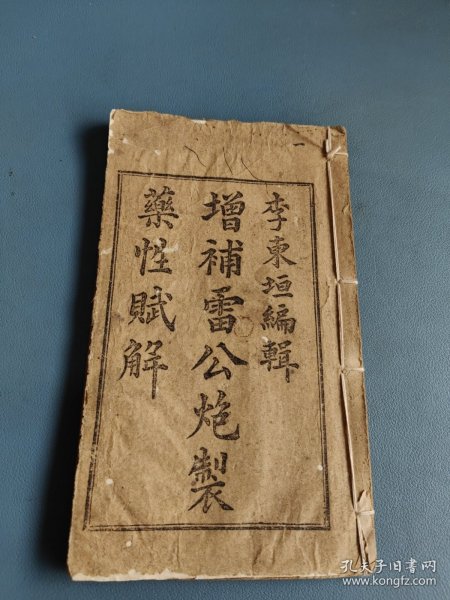 李東垣編輯
增補雷公炮製
藥性賦解
一
孔夫子旧书网
www.kongfz.com